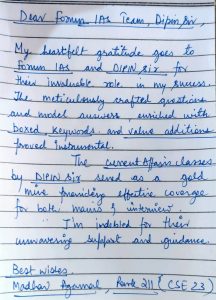 Dear Forum IAS Team, Dipin Sir,
My heartfelt gratitude goes to
Forum IAS and DIPIN Sir for
their invaluable role in my success.
The meticulously crafted questions
and model answers, enriched with
boxed keywords and value additions
proved instrumental.
The Current Affairs classes
by DIPIN Sir served as a gold
mine providing effective coverage
for both mains & interview.
I'm indebted for their
unwavering support and guidance.
Best wishes.
Madhav Agarwal, Rank 211 (CSE 23)